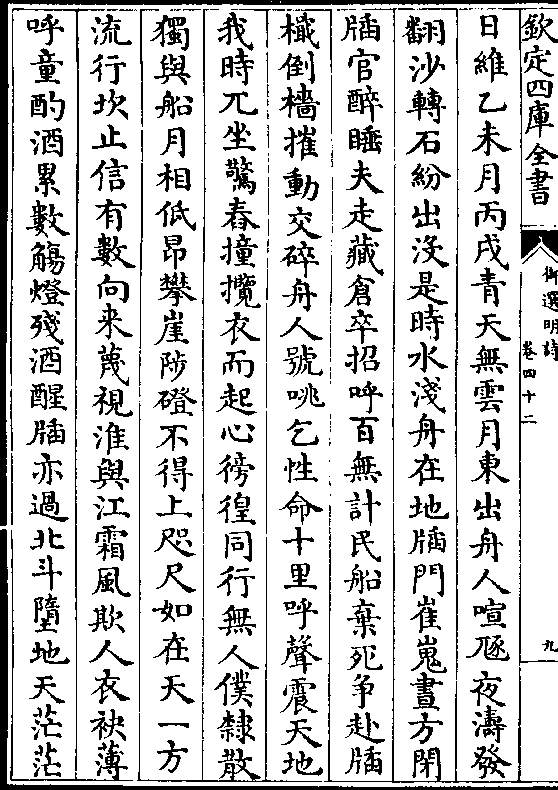 欽定四庫全書
御選明詩
卷四十二
九
日維乙未月丙戌青天無雲月東出舟人喧豗夜濤發
翻沙轉石紛出沒是時水淺舟在地牐門崔嵬晝方閉
牐官醉睡夫走藏倉卒招呼百無計民船棄死争赴牐
檝倒檣摧動交碎舟人號咷乞性命十里呼聲震天地
我時兀坐驚舂撞攬衣而起心徬徨同行無人僕隸散
獨與船月相低昂攀崖陟磴不得上咫尺如在天一方
流行坎止信有數向来蔑視淮與江霜風欺人衣袂薄
呼童酌酒累數觴燈殘酒醒牐亦過北斗墮地天茫茫